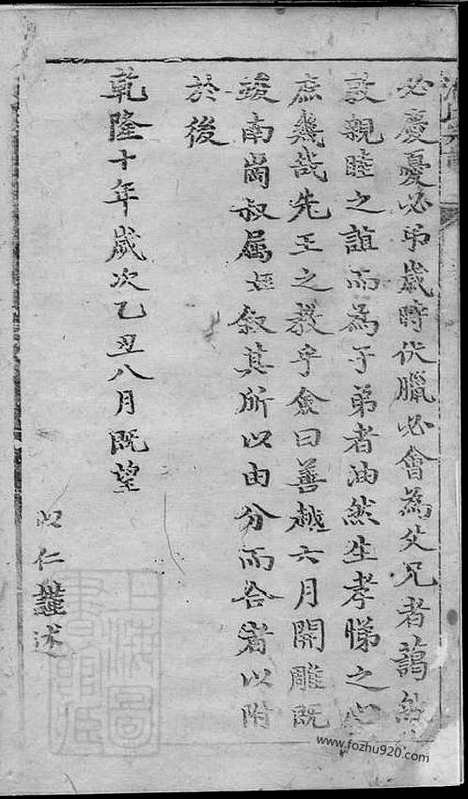 必慶憂必弔歲時伏臘必會為父兄者藹然
敦親睦之誼而為子弟者油然生孝悌之心
庶幾哉先王之教乎僉曰善越六月開雕既
竣南崗叔屬姪叙其所以由分而合者以附
於後
乾隆十年歲次乙丑八月既望
以仁謹述
www.fozhu920.com